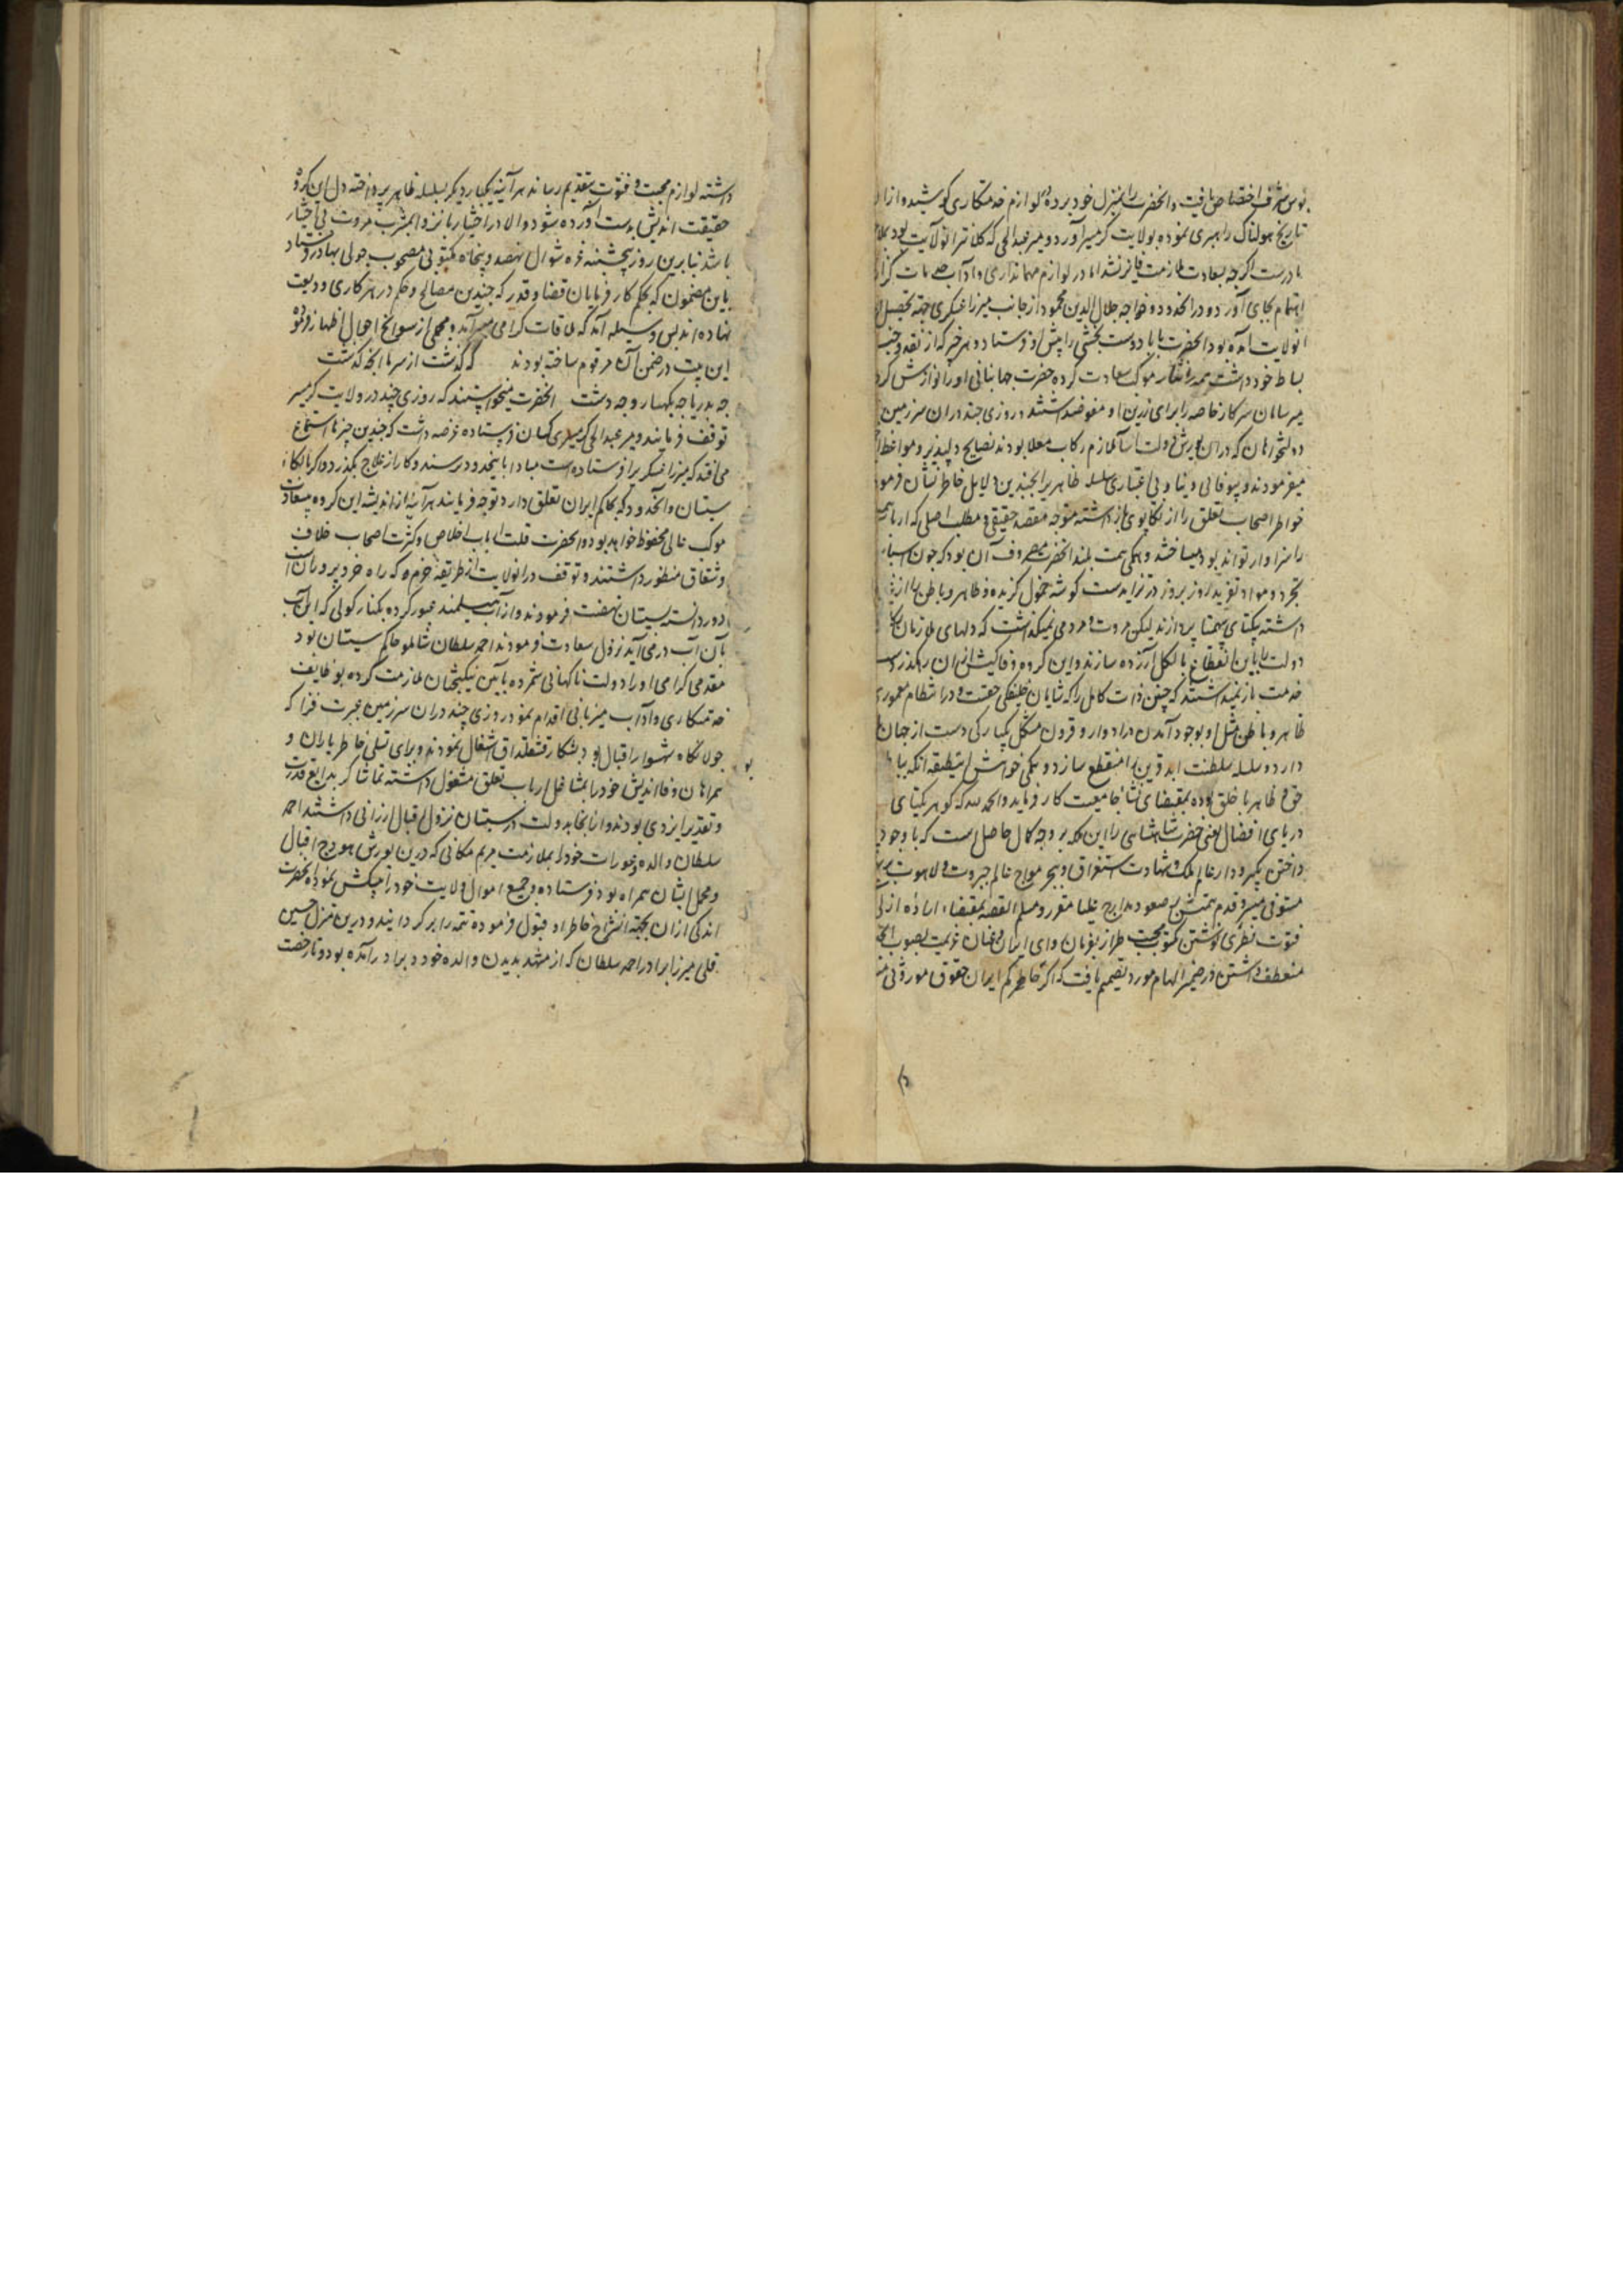 بوس شرف اختصاص یافت و آنحضرت را بمنزل خود برده لوازم خدمتکاری کوشید و ازا
تاریخ هولناک راهبری نموده بولایت کرمسیر آورد و میر عبدالحی که کلانتر انولایت بود
ادرست اکرچه بسعادت ملازمت فایز نشد اما در لوازم مهمانداری و آداب
اهتمام بجای آورد و در انحدود خواجه جلال الدین محمود از جانب میرزا عسکری جهة تحصیل
انولایت آمده بود انحضرت بابا دوست بخشی را پیش او فرستاد و هر چیز که از نقد و جنس
بساط خود داشت همه را نثار موکب سعادت کرده حضرت جهانبانی او را نوازش کرد
میر سامان سرکار خاصه را برای زرین او مفوض داشتند و روزی چند دران سرزمین
دولتخواهان که دران یورش دولت آسا ملازم رکاب معلا بودند نصایح دلپذیر و مواعظ
میفرمودند و بیوفائی دنیا و بی اعتباری سلسله ظاهر را بچندین دلایل خاطر نشان فرمو
خواطر اصحاب تعلق را از تکاپوی باز داشته متوجه مقصد حقیقی و مطلب اصلی که
را سزاوار تواند بود میساختند و همکی همت بلند انحضرت مصروف آن بود که چون اسباب
تجرد و مواد تفرید روز بروز در تزایدست کوشه خمول کزیده و ظاهر و باطن را از
داشته بیکتای بیهمتا پردازند لیکن مروت و مردمی نمیکذاشت که دلهای ملازمان
دولت را باین انقطاع بالکل آزرده سازند و این کروه وفاکیش ازان رهکذر
خدمت باز نمیداشتند که چنین ذات کامل را که شایان خلیفکی حقست و در انتظام معموری
ظاهر و باطن مثل او بوجود آمدن در ادوار و قرون مشکل یکبارکی دست از جهان
دارد و سلسله سلطنت ابد قرین را منقطع سازد و همکی خواهش این طبقه آنکه بباطن
حق و ظاهر با خلق بوده بمقتضای نشأ جامعیت کار فرماید والحمد لله که کوهر یکتای
دریای افضال یعنی حضرت شاهنشاهی را این همه بر وجه کمال حاصل است که با وجود
داختن بکیر و دار عالم ملک و شهادت استغراق و ببحر مواج عالم جبروت و لاهوت
مستوفی میسر و قدم همتش بر صعود مدارج علیا مقرر و مسلم القصه بمقتضاء اراده ازلی
فتوت فطری نوشتن مکتوب محبت طراز بفرمان روای ایران و عنان عزیمت بصوب
منعطف داشتن در ضمیر الهام مورد تصمیم یافت که اکر حاکم ایران حقوق موروثی
داشته لوازم محبت و فتوت بتقدیم رساند هر آینه یکبار دیکر بسلسله ظاهر پرداخته دل این کروه
حقیقت اندیش بدست آورده شود والا در اختیار باز و المشرب مروت بی اختیار
باشد بنابرین روز پنجشنبه غره شوال نهصد و پنجاه مکتوبی مصحوب چولی بهادر فرستاد
باین مضمون که بحکم کار فرمایان قضا و قدر که چندین مصالح و حکم در هر کاری ودیعت
نهاده اند بس وسیله آمد که ملاقات کرامی میسر آید و مجملی از سوانح احوال اظهار فرموده
این بیت در ضمن آن مرقوم ساخته بودند که کذشت از سر ما انچه کذشت
چه بدریا چه بکهسار و چه دشت انحضرت میخواستند که روزی چند در ولایت کرمسیر
توقف فرمایند و میر عبدالحی کرمسیری کسان فرستاده عرضه داشت که چندین چیزها استماع
می افتد که میرزا عسکری را فرستاده است مبادا باینحدود رسند و کار از علاج بکذرد و اکر بالکا
سیستان و انحدود که بحاکم ایران تعلق دارد توجه فرمایند هر آینه از اندیشه این کروه
موکب عالی محفوظ خواهد بود و انحضرت قلت ارباب اخلاص و کثرت اصحاب خلاف
و شقاق منظور داشتند و توقف در انولایت از طریقه حزم که راه خرد پروران است
دور دانسته بسیستان نهضت فرمودند و از آب هیلمند عبور کرده بکنار کولی که این آب
بآن آب درمی آید نزول سعادت فرمودند احمد سلطان شاملو حاکم سیستان بود
مقدم کرامی او را دولت ناکهانی شمرده بآیین نیکبختان ملازمت کرده بوظایف
خدمتکاری و آداب میزبانی اقدام نمود روزی چند دران سرزمین عبرت فزا که
جولانکاه شهسوار اقبال بود بشکار قشقلداق اشتغال نمودند و برای تسلی خاطر یاران و
همراهان وفا اندیش خود را بمشاغل ارباب تعلق مشغول داشته تماشاکر بدایع قدرت
و تقدیر ایزدی بودند و ازانجا بدولت در سیستان نزول اقبال ارزانی داشتند احمد
سلطان والده و عورات خود را بملازمت مریم مکانی که درین یورش هودج اقبال
و محمل ایشان همراه بود فرستاده و جمیع اموال ولایت خود را پیشکش نمود انحضرت
اندکی ازان بجهة انشراح خاطر او قبول فرموده تتمه را بر کردانیدند و درین منزل حسین
قلی میرزا برادر احمد سلطان که از مشهد بدیدن والده خود و برادر آمده بود و تا رخصت